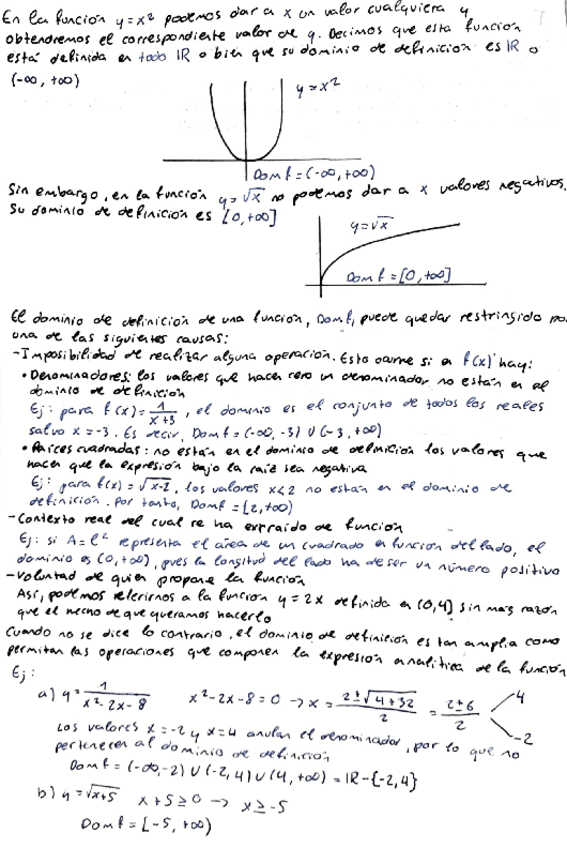 En la función y=x² podemos dar a x un valor cualquiera y
obtendremos el correspondiente valor de y. Decimos que esta función
está definida en todo IR o bien que su dominio de definición es IR o
(-∞, +∞)
y=x²
Dom f = (-∞, +∞)
Sin embargo, en la función y=√x no podemos dar a x valores negativos.
Su dominio de definición es [0, +∞]
y=√x
Dom f = [0, +∞]
El dominio de definición de una función, Dom f, puede quedar restringido por
una de las siguientes causas:
-Imposibilidad de realizar alguna operación. Esto ocurre si a f(x) hay:
• Denominadores: los valores que hacen cero un denominador no están en el
dominio de definición
Ej: para f(x) = 1/(x+3), el dominio es el conjunto de todos los reales
salvo x=-3. Es decir, Dom f = (-∞, -3) ∪ (-3, +∞)
• Raíces cuadradas: no están en el dominio de definición los valores que
hacen que la expresión bajo la raíz sea negativa
Ej: para f(x) = √x-2, los valores x<2 no están en el dominio de
definición. Por tanto, Dom f = [2, +∞)
-Contexto real del cual se ha extraído de función
Ej: si A=l² representa el área de un cuadrado en función del lado, el
dominio es (0, +∞), pues la longitud del lado ha de ser un número positivo
-Voluntad de quien propone la función
Así, podemos referirnos a la función y=2x definida en (0,4] sin mas razón
que el hecho de que queramos hacerlo
Cuando no se dice lo contrario, el dominio de definición es tan amplia como
permitan las operaciones que componen la expresión analítica de la función
Ej:
a) y = 1/(x²-2x-8) x²-2x-8=0 → x = (2±√4+32)/2 = (2±6)/2 4
-2
Los valores x=-2 y x=4 anulan el denominador, por lo que no
pertenecen al dominio de definición
Dom f = (-∞, -2) ∪ (-2, 4) ∪ (4, +∞) = IR - {-2, 4}
b) y=√x+5 x+5≥0 → x≥-5
Dom f = [-5, +∞)